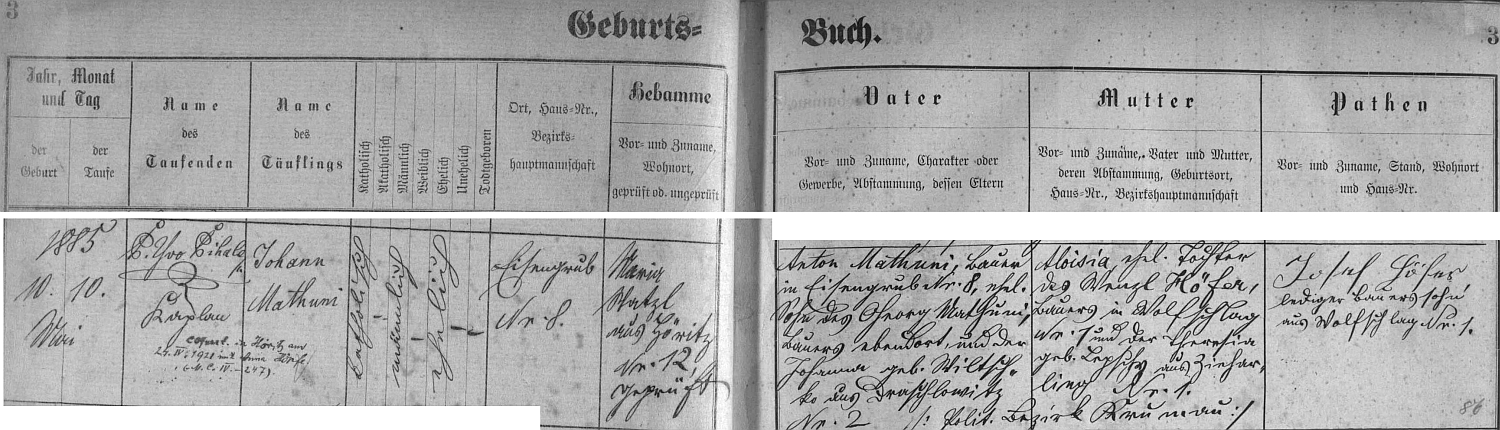 3
Geburts=
Buch.
3
Jahr, Monat
und Tag
der
Geburt
der
Taufe
Name
des
Taufenden
Name
des
Täuflings
Katholisch
Akatholisch
Männlich
Weiblich
Ehelich
Unehelich
Todtgeboren
Ort, Haus=Nr.,
Bezirks=
hauptmannschaft
Hebamme
Vor= und Zuname,
Wohnort,
geprüft od. ungeprüft
Vater
Vor= und Zuname, Charakter oder
Gewerbe, Abstammung, dessen Eltern
Mutter
Vor= und Zuname, Vater und Mutter,
deren Abstammung, Geburtsort,
Haus=Nr., Bezirkshauptmannschaft
Pathen
Vor= und Zuname, Stand, Wohnort
und Haus=Nr.
1885
10. 10.
Mai
P. Yvo Pihale
Kaplan
Johann
Mathuni
copul. in Höritz am
katholisch
männlich
ehelich
Eisengrub
Nr. 8.
Maria
Watzl
aus Höritz
Nr. 12,
geprüft
Anton Mathuni, Bauer
in Eisengrub Nr. 8, ehel.
Sohn des Georg Mathuni,
Bauers ebendort, und der
Johanna geb. Wiltsch-
ko aus Draschlowitz
Nr. 2
Aloisia ehel. Tochter
des Wenzl Höfer,
Bauers in Wolfschlag
Nr. 1 und der Theresia
geb. Lepschy aus Ziehar-
ling Nr. 1.
/: Polit. Bezirk Krumau :/
Josef Höfer
lediger Bauerssohn
aus Wolfschlag Nr. 1.
86